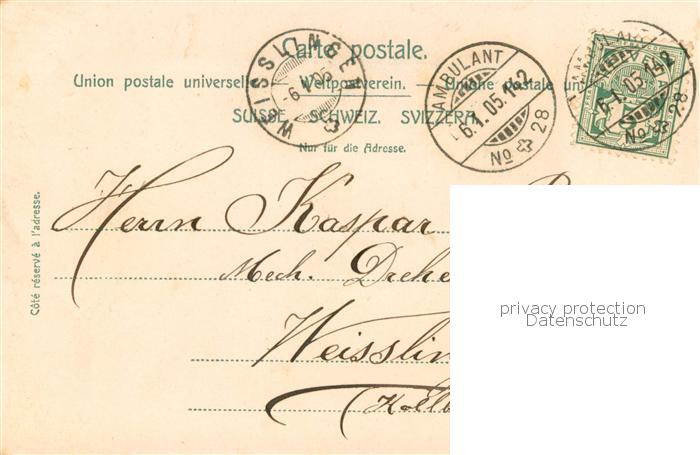 Carte postale.
Union postale universelle. — Weltpostverein. — Unione postale un
SUISSE. SCHWEIZ. SVIZZERA.
Nur für die Adresse.
WEISSLINGEN
-6.I.05
AMBULANT
6.I.05.
No 28
AMBULANT
6.I.05.
No 28
Côté réservé à l'adresse.
Herrn Kaspar
Mech. Drehe
Weisslin
privacy protection
Datenschutz